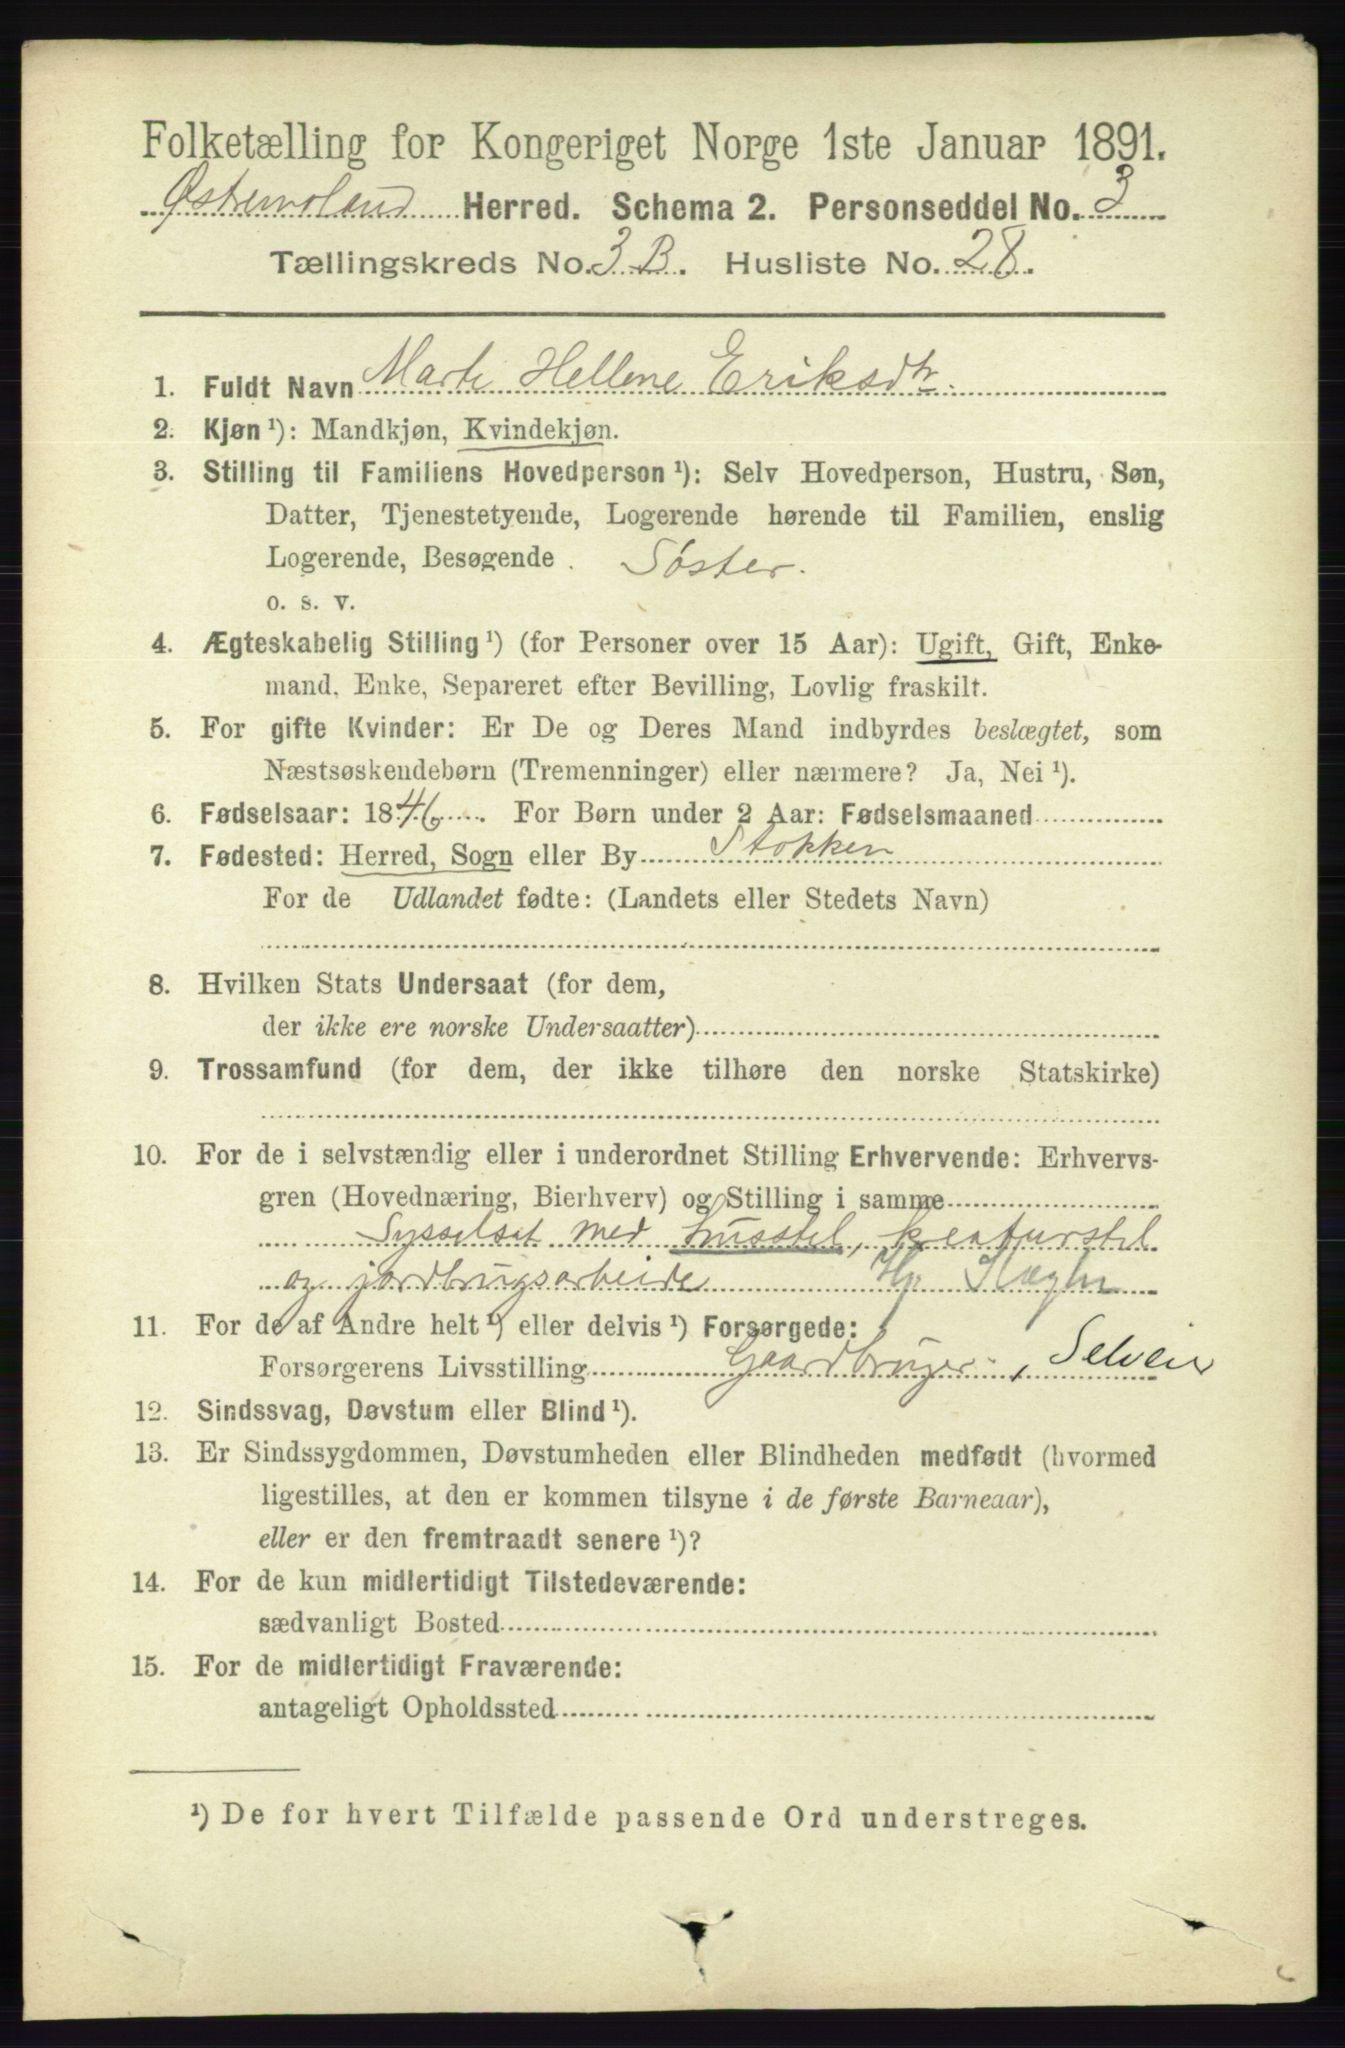 Folketælling for Kongeriget Norge 1ste Januar 1891.
Østremoland Herred. Schema 2. Personseddel No. 3
Tællingskreds No. 3 B. Husliste No. 28.
1. Fuldt Navn Marte Hellene Eriksdtr.
2. Kjøn ¹): Mandkjøn, Kvindekjøn.
3. Stilling til Familiens Hovedperson ¹): Selv Hovedperson, Hustru, Søn,
Datter, Tjenestetyende, Logerende hørende til Familien, enslig
Logerende, Besøgende . Søster.
o. s. v.
4. Ægteskabelig Stilling ¹) (for Personer over 15 Aar): Ugift, Gift, Enke-
mand, Enke, Separeret efter Bevilling, Lovlig fraskilt.
5. For gifte Kvinder: Er De og Deres Mand indbyrdes beslægtet, som
Næstsøskendebørn (Tremenninger) eller nærmere? Ja, Nei ¹).
6. Fødselsaar: 1846. For Børn under 2 Aar: Fødselsmaaned
7. Fødested: Herred, Sogn eller By Stokken
For de Udlandet fødte: (Landets eller Stedets Navn)
8. Hvilken Stats Undersaat (for dem,
der ikke ere norske Undersaatter)
9. Trossamfund (for dem, der ikke tilhøre den norske Statskirke)
10. For de i selvstændig eller i underordnet Stilling Erhvervende: Erhvervs-
gren (Hovednæring, Bierhverv) og Stilling i samme
Sysselsat med husstel, kreaturstel
og jordbrugsarbeide
11. For de af Andre helt ¹) eller delvis ¹) Forsørgede:
Forsørgerens Livsstilling Gaardbruger, Selveier
12. Sindssvag, Døvstum eller Blind ¹).
13. Er Sindssygdommen, Døvstumheden eller Blindheden medfødt (hvormed
ligestilles, at den er kommen tilsyne i de første Barneaar),
eller er den fremtraadt senere ¹)?
14. For de kun midlertidigt Tilstedeværende:
sædvanligt Bosted
15. For de midlertidigt Fraværende:
antageligt Opholdssted
¹) De for hvert Tilfælde passende Ord understreges.